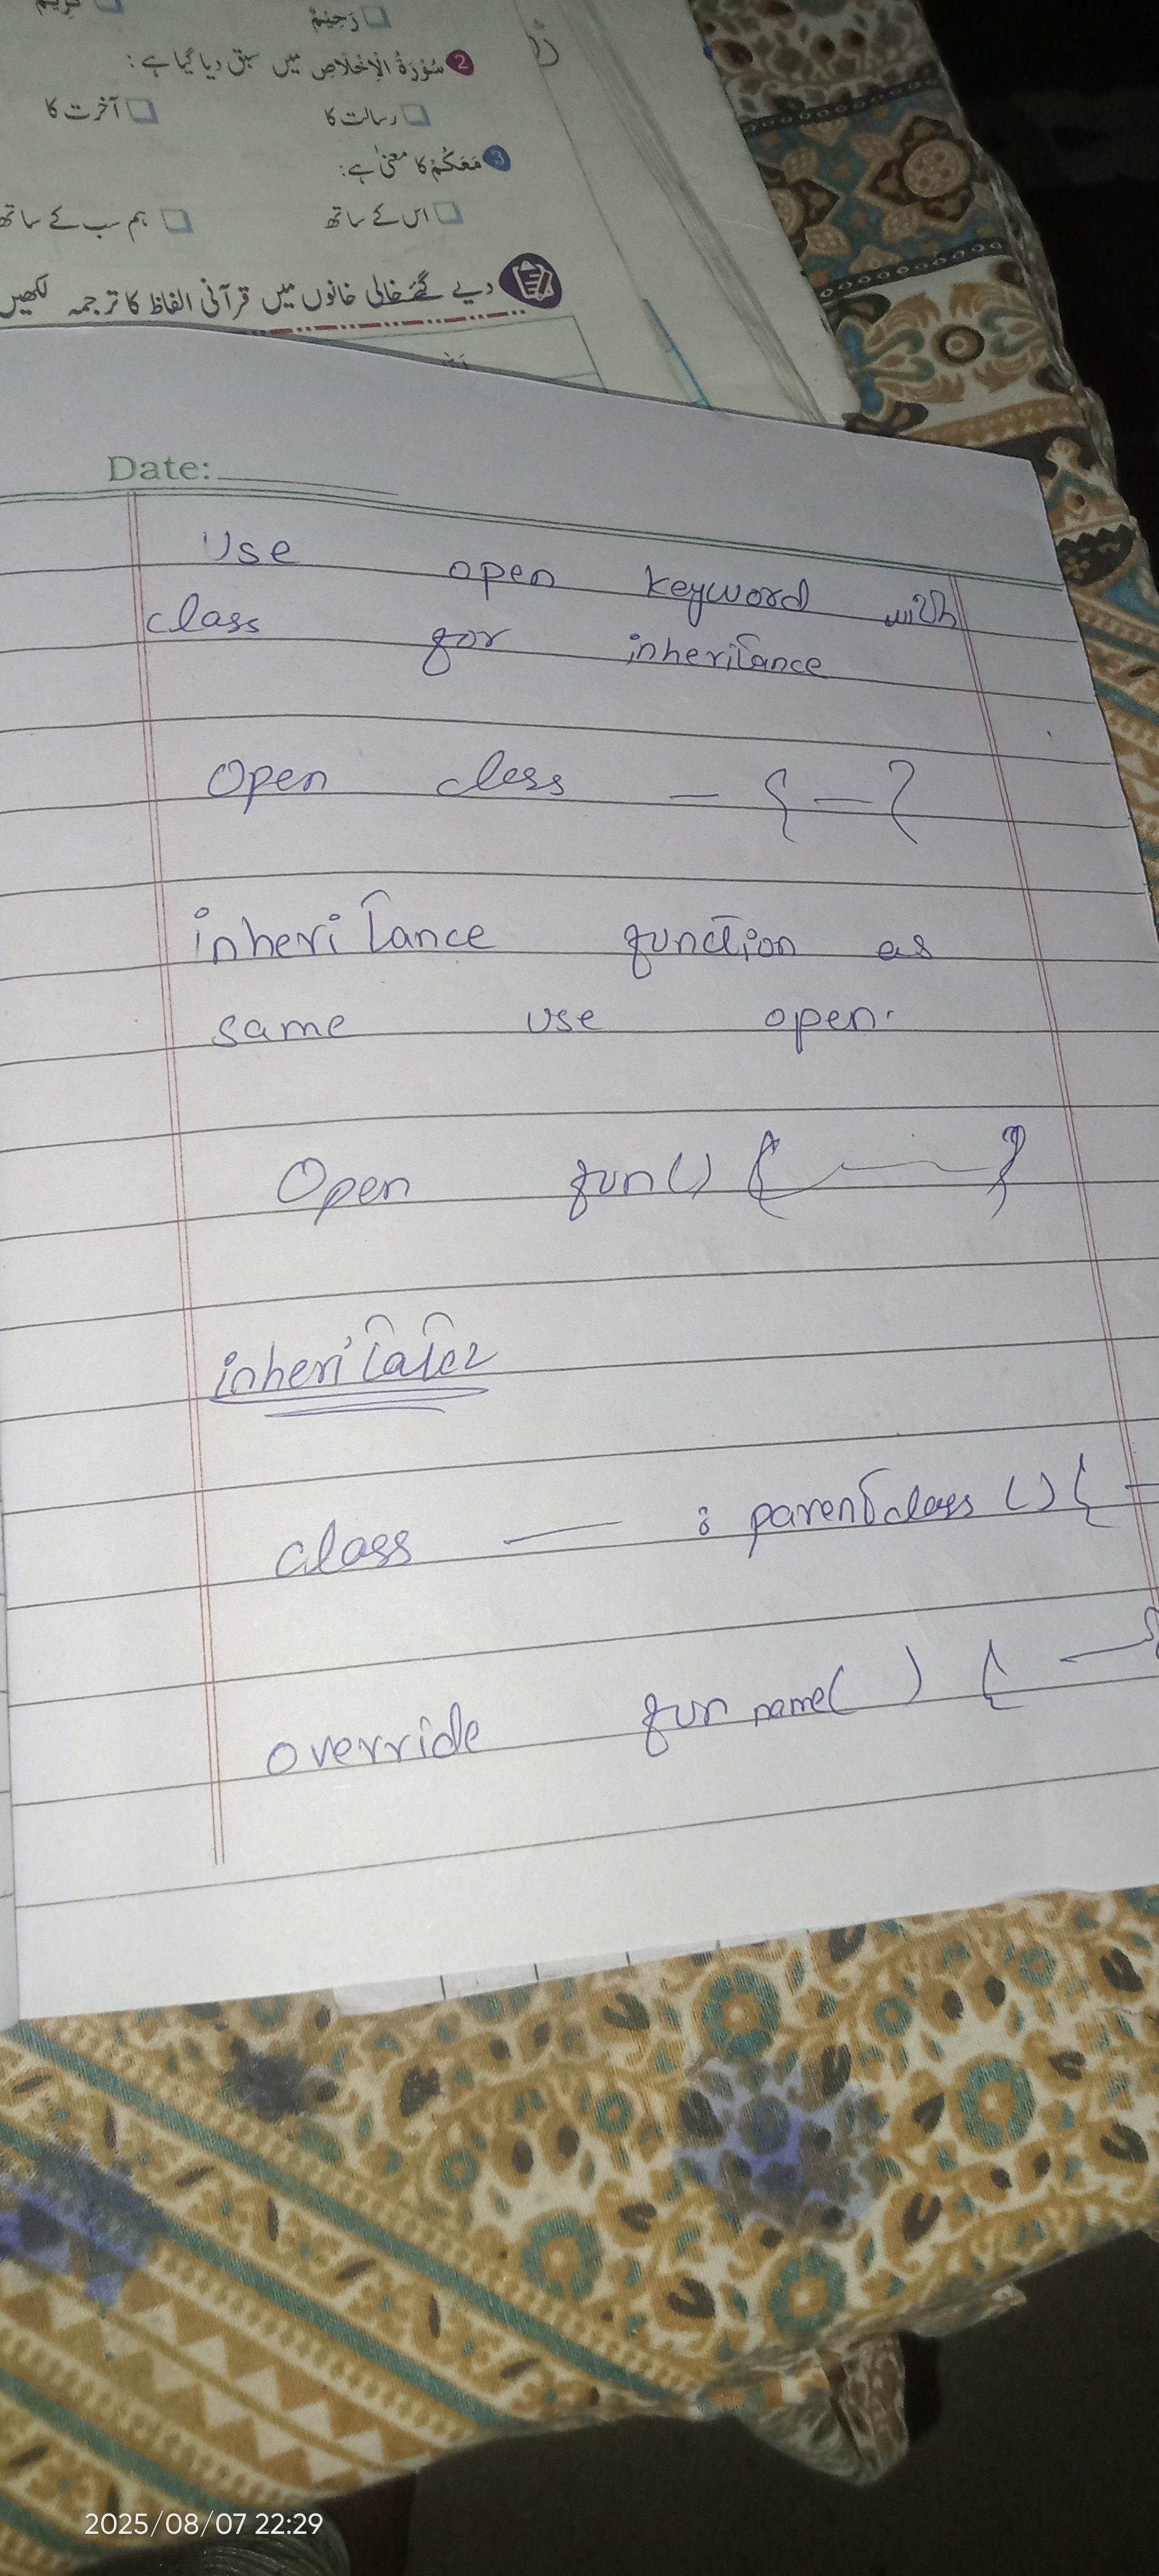 رَحِيْمٌ
2 سُوْرَةُ الْاِخْلَاصِ میں سبق دیا گیا ہے:
رسالت کا آخرت کا
3 مَعَكُمْ کا معنیٰ ہے:
اس کے ساتھ ہم سب کے ساتھ
دیے گئے خالی خانوں میں قرآنی الفاظ کا ترجمہ لکھیں
Date:
Use open keyword with
class for inheritance
Open class — { — }
inheritance function as
same use open.
Open fun() { — }
class — : parentclass () { —
override fun name( ) { — }
2025/08/07 22:29